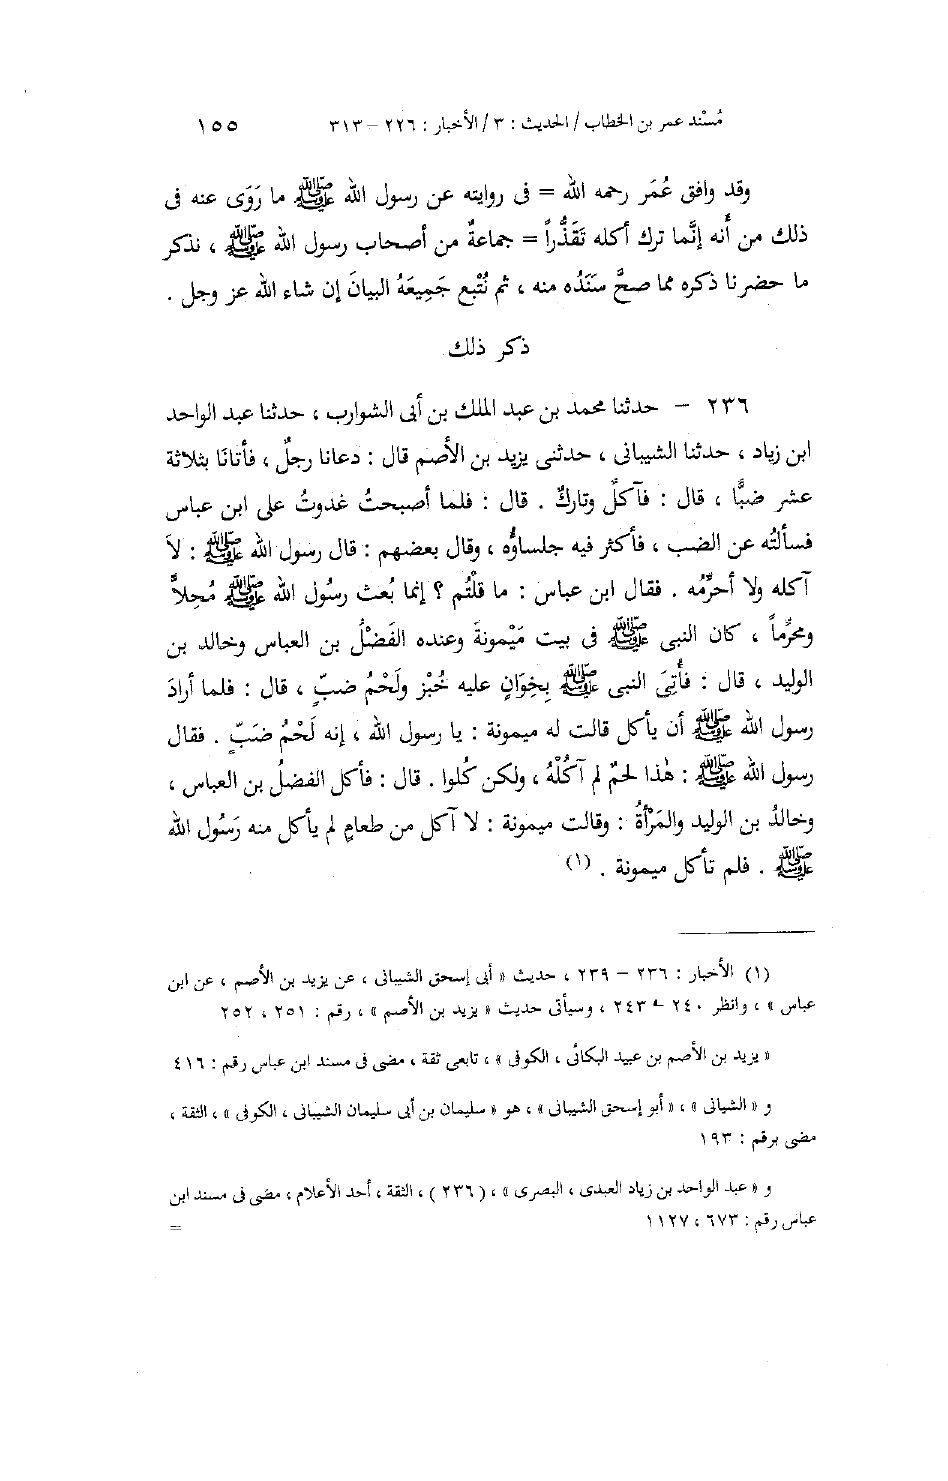 مُسْند عمر بن الخطاب / الحديث : ٣ / الأخبار : ٢٢٦ – ٣١٣ ١٥٥
وقد وافق عُمَر رحمه الله = فى روايته عن رسول الله ﷺ ما رَوَى عنه فى
ذلك من أنه إنَّما ترك أكله تَقَذُّراً = جماعةٌ من أصحاب رسول الله ﷺ ، نذكر
ما حضرنا ذكره مما صحَّ سَنَدُه منه ، ثم نُتْبع جَمِيعَهُ البيانَ إن شاء الله عز وجل .
ذكر ذلك
٢٣٦ – حدثنا محمد بن عبد الملك بن أبى الشوارب ، حدثنا عبد الواحد
ابن زياد ، حدثنا الشيبانى ، حدثنى يزيد بن الأصم قال : دعانا رجلٌ ، فأتانَا بثلاثة
عشر ضبًّا ، قال : فآكلٌ وتاركٌ . قال : فلما أصبحتُ غدوتُ على ابن عباس
فسألتُه عن الضب ، فأكثر فيه جلساؤُه ، وقال بعضهم : قال رسول الله ﷺ : لاَ
آكله ولا أحرِّمُه . فقال ابن عباس : ما قلْتُم ؟ إنما بُعث رسُول الله ﷺ مُحِلاًّ
ومحرِّماً ، كان النبى ﷺ فى بيت مَيْمونةَ وعنده الفَضْلُ بن العباس وخالد بن
الوليد ، قال : فأُتِىَ النبى ﷺ بِخِوَانٍ عليه خُبْز ولَحْمُ ضبّ ، قال : فلما أرادَ
رسول الله ﷺ أن يأكل قالت له ميمونة : يا رسول الله ، إنه لَحْمُ ضَبّ . فقال
رسول الله ﷺ : هٰذا لحمٌ لم آكُلْهُ ، ولكن كُلوا . قال : فأكل الفضلُ بن العباس ،
وخالدُ بن الوليد والمَرْأةُ : وقالت ميمونة : لا آكل من طعامٍ لم يأكل منه رَسُول الله
ﷺ . فلم تأكل ميمونة . (١)
(١) الأخبار : ٢٣٦ – ٢٣٩ ، حديث « أبى إسحق الشيبانى ، عن يزيد بن الأصم ، عن ابن
عباس » ، وانظر ٢٤٠ – ٢٤٣ ، وسيأتى حديث « يزيد بن الأصم » ، رقم : ٢٥١ ، ٢٥٢
« يزيد بن الأصم بن عبيد البكائى ، الكوفى » ، تابعى ثقة ، مضى فى مسند ابن عباس رقم : ٤١٦
و « الشيبانى » ، « أبو إسحق الشيبانى » ، هو « سليمان بن أبى سليمان الشيبانى ، الكوفى » ، الثقة ،
مضى برقم : ١٩٣
و « عبد الواحد بن زياد العبدى ، البصرى » ، ( ٢٣٦ ) ، الثقة ، أحد الأعلام ، مضى فى مسند ابن
عباس رقم : ٦٧٣ ، ١١٢٧ =